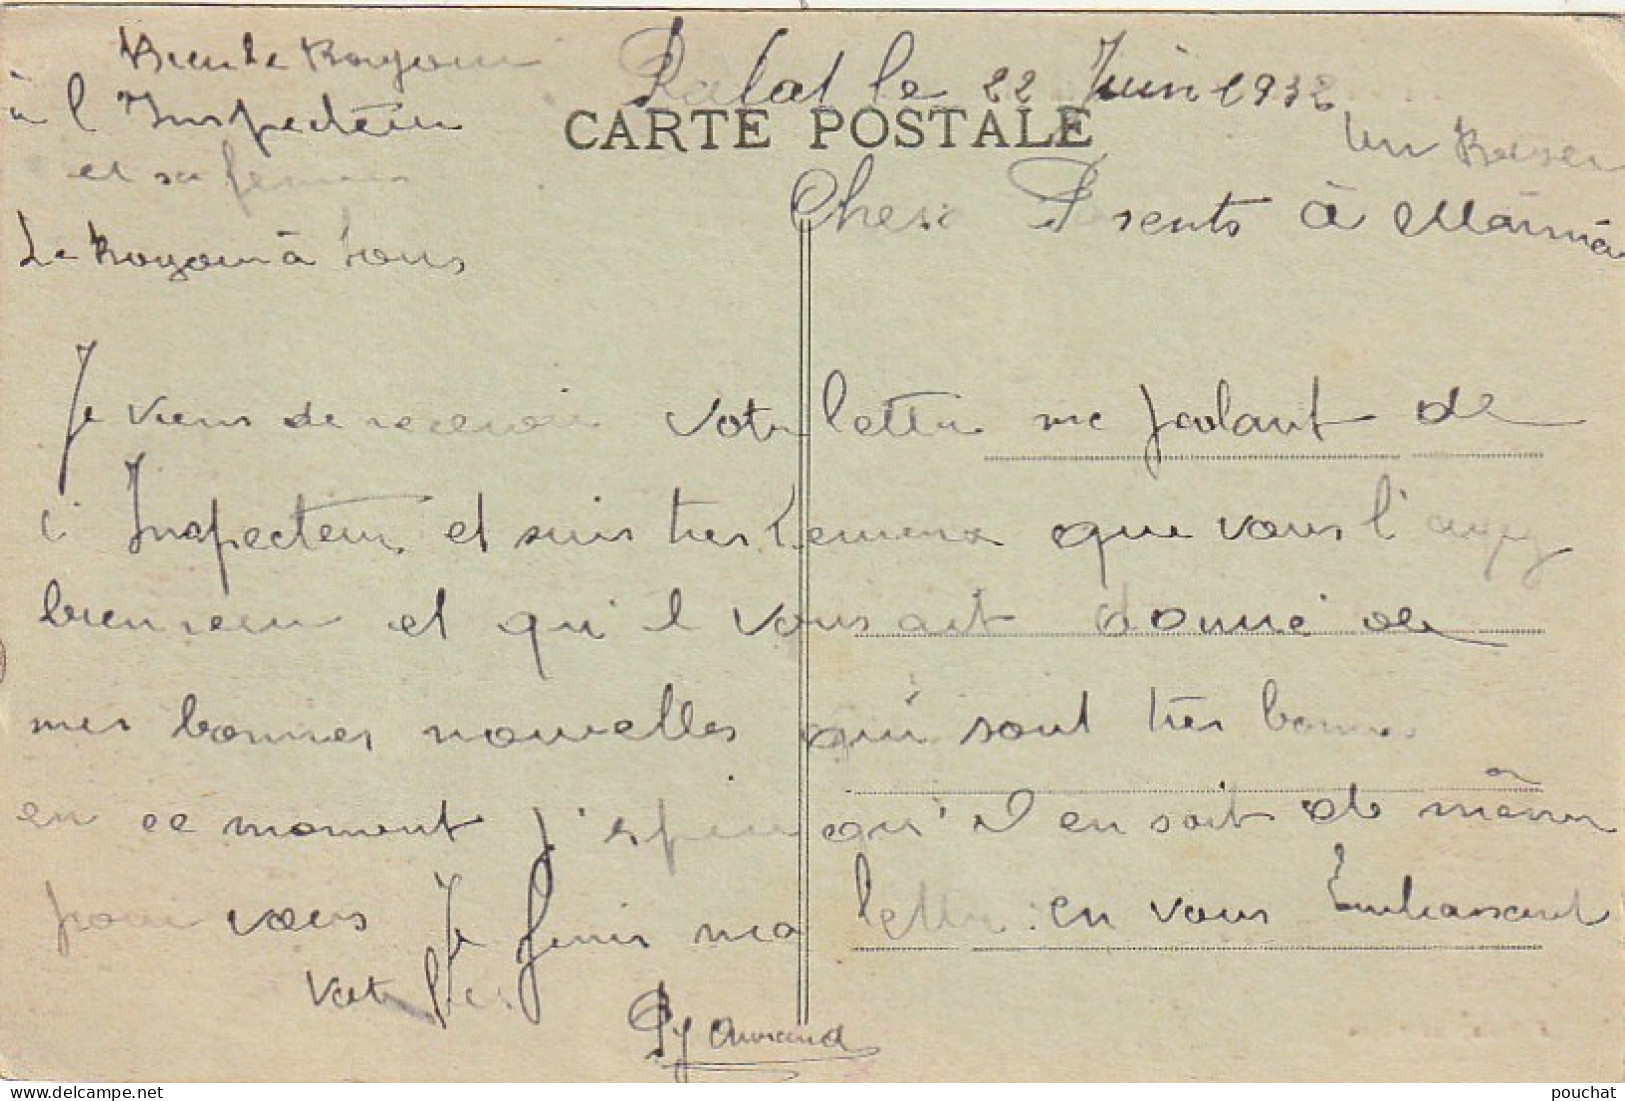 Rabat le 22 Juin 1932
CARTE POSTALE
Un Baiser
Chers Parents à Mémé
Bien le Bonjour
à l'Inspecteur
et sa femme
Le Bonjour à tous
Je viens de recevoir votre lettre me parlant de
l'Inspecteur et suis très heureux que vous l'ayez
bien reçu et qu'il vous ait donné de
mes bonnes nouvelles qui sont très bonnes
en ce moment j'espère qu'il en soit de même
pour vous Je finis ma lettre en vous Embrassant
Votre fils
Armand
pouchat